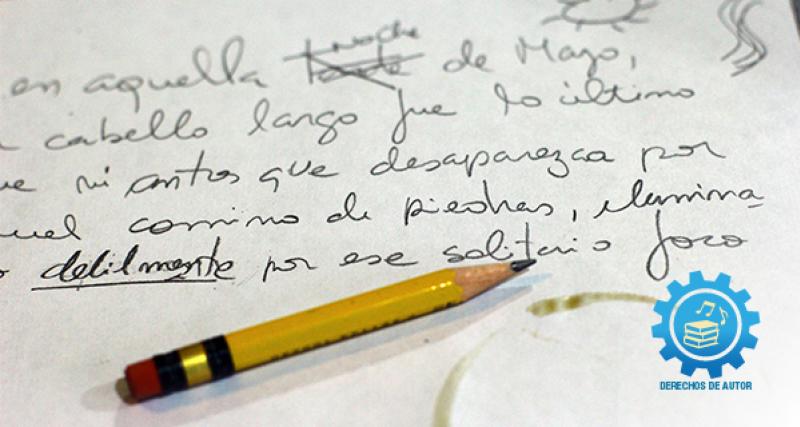 noche
en aquella tarde de Mayo,
cabello largo fue lo último
ue vi antes que desaparezca por
uel camino de piedras, ilumina
o debilmente por ese solitario foco
DERECHOS DE AUTOR